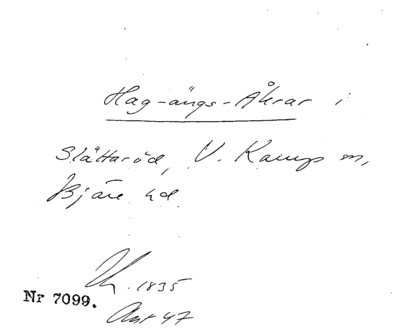 Hag-ängs-Åkrar i
Slättaröd, V. Karup sn,
Bjäre hd.
1835
Nr 7099.
47